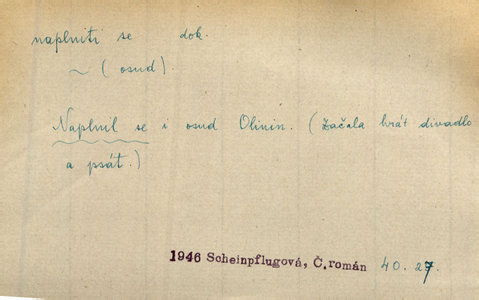 naplniti se dok.
~ (osud).
Naplnil se i osud Olinin. (Začala hrát divadlo
a psát.)
1946 Scheinpflugová, Č.román 40.27.